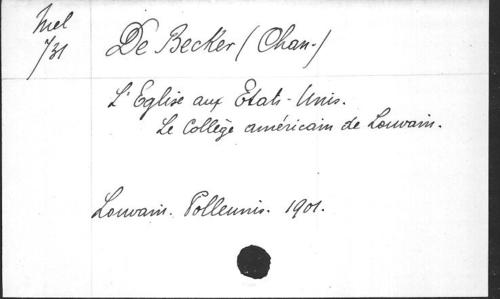 Mel
731
De Becker (Chan.)
L'Eglise aux Etats-Unis.
Le Collège américain de Louvain.
Louvain. Polleunis. 1901.